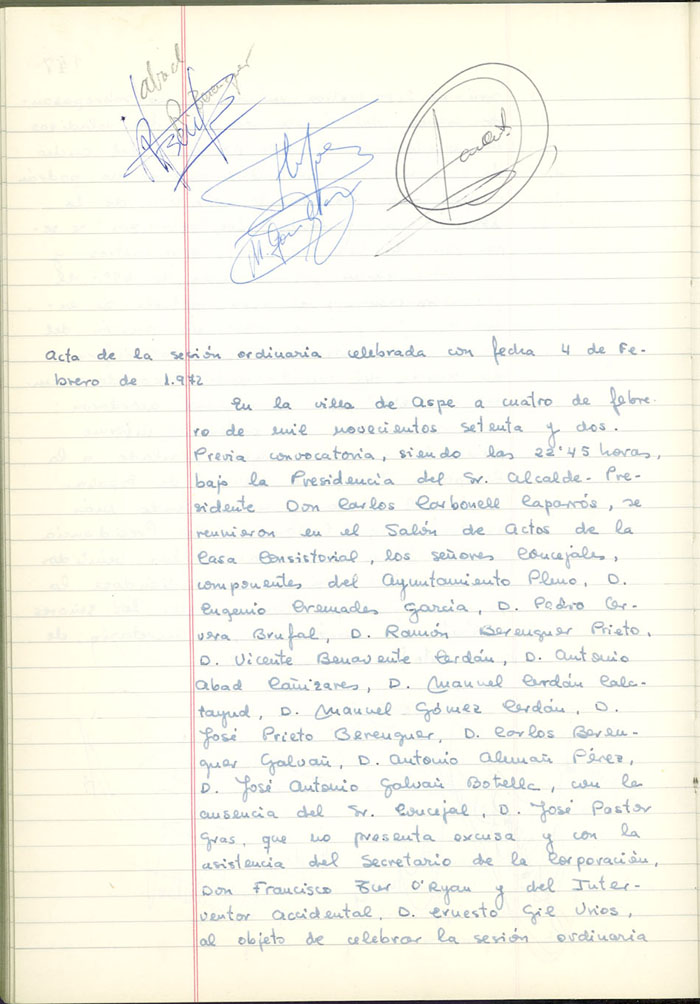 abad
Acta de la sesión ordinaria celebrada con fecha 4 de Fe-
brero de 1.972
En la villa de Aspe a cuatro de febre-
ro de mil novecientos setenta y dos.
Previa convocatoria, siendo las 22'45 horas,
bajo la Presidencia del Sr. Alcalde-Pre-
sidente Don Carlos Carbonell Caparrós, se
reunieron en el Salón de Actos de la
Casa Consistorial, los señores Concejales,
componentes del Ayuntamiento Pleno, D.
Eugenio Cremades García, D. Pedro Cer-
vera Brufal, D. Ramón Berenguer Prieto,
D. Vicente Benavente Cerdán, D. Antonio
Abad Cañizares, D. Manuel Cerdán Cala-
tayud, D. Manuel Gómez Cerdán, D.
José Prieto Berenguer, D. Carlos Beren-
guer Galvañ, D. Antonio Almañ Pérez,
D. José Antonio Galvañ Botella, con la
ausencia del Sr. Concejal, D. José Pastor
Gras, que no presenta excusa y con la
asistencia del Secretario de la Corporación,
Don Francisco Zur O'Ryan y del Inter-
ventor Accidental, D. Ernesto Gil Urios,
al objeto de celebrar la sesión ordinaria